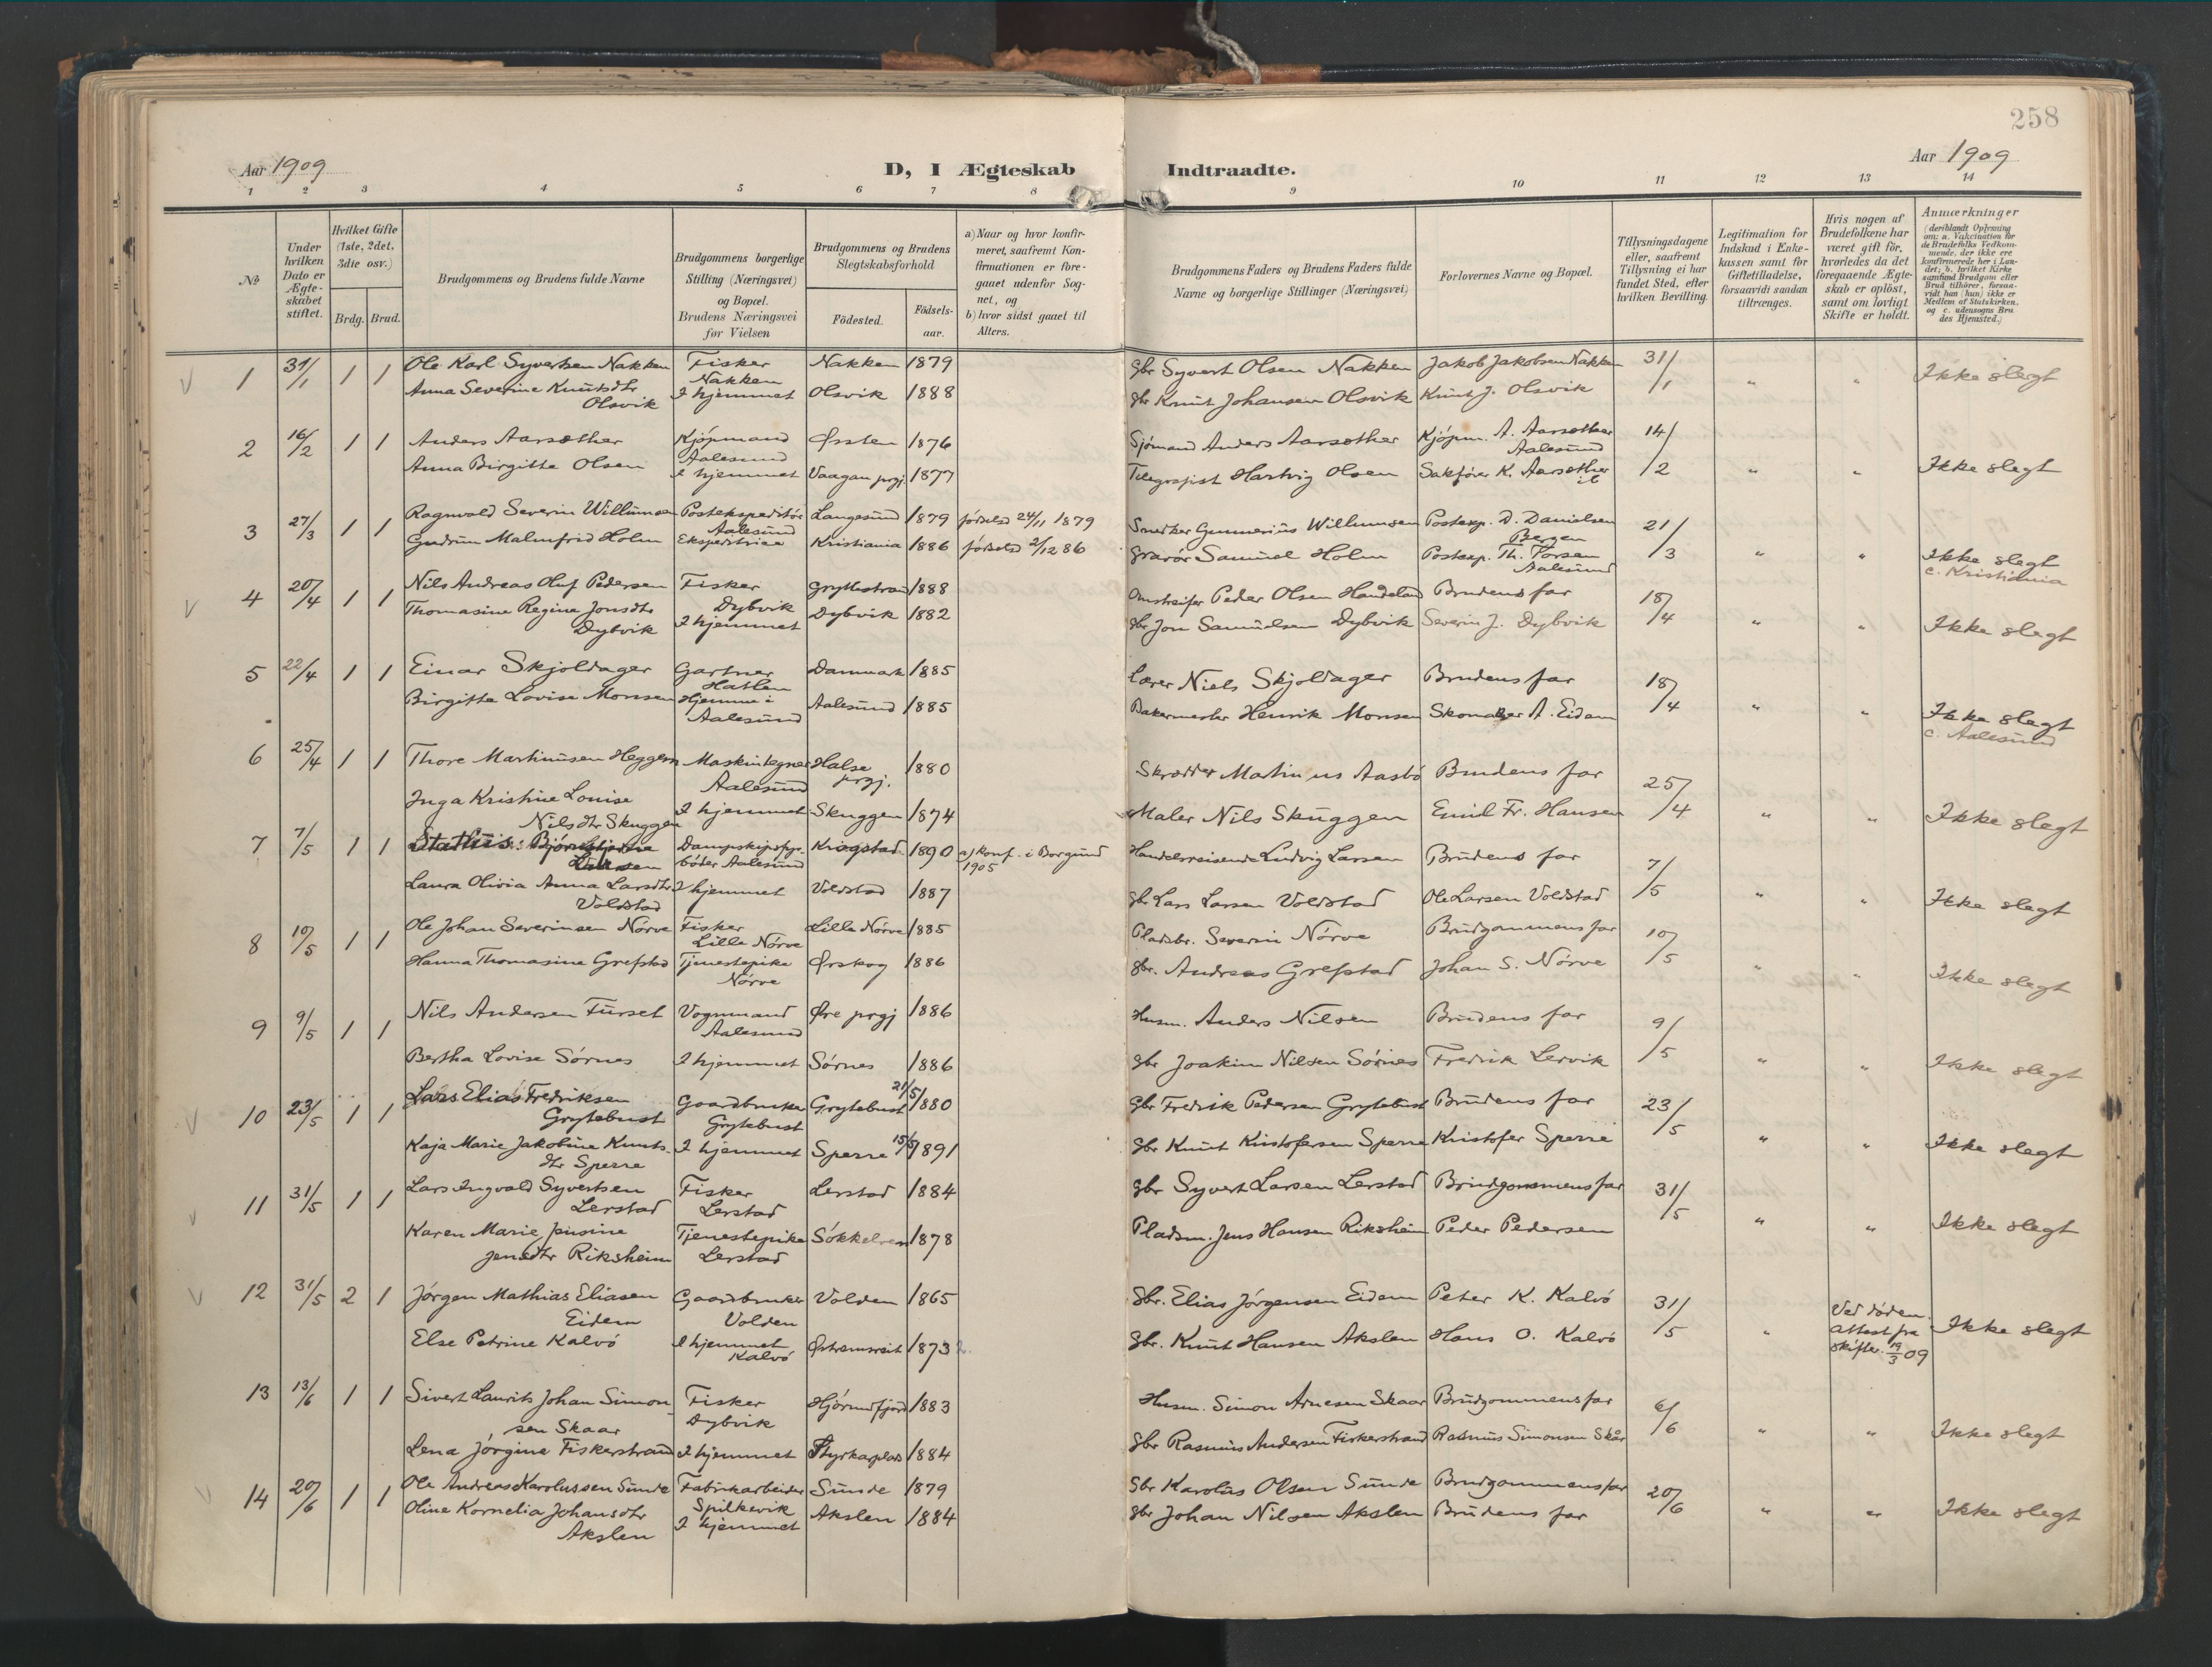 258
Aar 1909
D, I Ægteskab Indtraadte.
Aar 1909
1 2 3 4 5 6 7 8 9 10 11 12 13 14
№
Under hvilken Dato er Ægteskabet stiftet.
Hvilket Gifte (1ste, 2det, 3die osv.)
Brdg. Brud.
Brudgommens og Brudens fulde Navne
Brudgommens borgerlige Stilling (Næringsvei) og Bopæl. Brudens Næringsvei før Vielsen
Brudgommens og Brudens Slegtskabsforhold
Fødested. Fødselsaar.
a) Naar og hvor konfirmeret, saafremt Konfirmationen er foregaaet udenfor Sognet, og
b) hvor sidst gaaet til Alters.
Brudgommens Faders og Brudens Faders fulde Navne og borgerlige Stillinger (Næringsvei)
Forlovernes Navne og Bopæl.
Tillysningsdagene eller, saafremt Tillysning ei har fundet Sted, efter hvilken Bevilling.
Legitimation for Indskud i Enkekassen samt for Giftetilladelse, forsaavidt saadan tiltrænges.
Hvis nogen af Brudefolkene har været gift før, hvorledes da det foregaaende Ægteskab er opløst, samt om lovligt Skifte er holdt.
Anmærkninger (deriblandt Oplysning om: a. Vakcination for de Brudefolks Vedkommende, der ikke ere konfirmerede her i Landet; b. hvilket Kirkesamfund Brudgom eller Brud tilhører, forsaavidt han (hun) ikke er Medlem af Statskirken. og c. udensogns Brudes Hjemsted.)
1 31/1 1 1 Ole Karl Syvertsen Nakken Fisker Nakken Nakken 1879 Gbr Syvert Olsen Nakken Jakob Jakobsen Nakken 31/1 " " Ikke slegt
Anna Severine Knutsdtr Olsvik I hjemmet Olsvik 1888 Gbr Knut Johansen Olsvik Knut J. Olsvik
2 16/2 1 1 Anders Aarsæther Kjöpmand Aalesund Ørsten 1876 Sjömand Anders Aarsæther Kjöpm. A. Aarsæther Aalesund 14/2 " " Ikke slegt
Anna Birgitte Olsen I hjemmet Vaagan prgj. 1877 Telegrafist Hartvig Olsen Sakförer K. Aarsæther
3 27/3 1 1 Ragnvald Severin Willumsen Postekspeditör Aalesund Langesund 1879 födsels 24/11 1879 Snedker Gunnerius Willumsen Postexp. D. Danielsen Bergen 21/3 " " Ikke slegt
Gudrun Malmfrid Holm Ekspeditrice Kristiania 1886 födsels 2/12 86 Gravör Samuel Holm Postexp. Th. Torsen Aalesund c. Kristiania
4 20/4 1 1 Nils Andreas Oluf Pedersen Fisker Dybvik 1888 Omstreifer Peder Olsen Brudens far 18/4 " " Ikke slegt
Thomasine Regine Jonsdtr Dybvik I hjemmet Dybvik 1882 Gbr Jon Samuelsen Dybvik Severin J. Dybvik
5 22/4 1 1 Einar Skjoldager Gartner Hatlen Danmark 1885 Lærer Niels Skjoldager Brudens far 18/4 " " Ikke slegt
Birgitte Lovise Monsen Hjemme i Aalesund Aalesund 1885 Bakermester Henrik Monsen Skomaker A. Eidem c. Aalesund
6 25/4 1 1 Thore Martinusen Heggem Maskintegner Aalesund Halse prgj. 1880 Skrædder Martinus Aasbö Brudens far 25/4 " " Ikke slegt
Inga Kristine Louise Nilsdtr Skuggen I hjemmet Skuggen 1874 Maler Nils Skuggen Emil Fr. Hansen
7 7/5 1 1 Larsen Dampskipsfyrböder Aalesund Krogstad 1890 a) konf. i Borgund 1905 Handelsreisende Ludvig Larsen Brudens far 7/5 " " Ikke slegt
Laura Olivia Anna Larsdtr Voldstad I hjemmet Voldstad 1887 Gbr Lars Larsen Voldstad Ole Larsen Voldstad
8 10/5 1 1 Ole Johan Severinsen Nörve Fisker Lille Nörve Lille Nörve 1885 Pladsbr. Severin Nörve Brudgommens far 10/5 " " Ikke slegt
Hanna Thomasine Grefstad Tjenestepike Nörve Ørskog 1886 Gbr. Andreas Grefstad Johan S. Nörve
9 9/5 1 1 Nils Andersen Furset Vognmand Aalesund Øre prgj 1886 Husm. Anders Nilsen Brudens far 9/5 " " Ikke slegt
Bertha Lovise Sörnes I hjemmet Sörnes 1886 Gbr Joakim Nilsen Sörnes Fredrik Lervik
10 23/5 1 1 Lars Elias Fredriksen Grytebust Gaardbruker Grytebust Grytebust 21/5 1880 Gbr Fredrik Pedersen Grytebust Brudens far 23/5 " " Ikke slegt
Kaja Marie Jakobine Knutsdtr Sperre I hjemmet Sperre 1891 Gbr Knut Kristofersen Sperre Kristofer Sperre
11 31/5 1 1 Lars Ingvald Syvertsen Lerstad Fisker Lerstad Lerstad 1884 Gbr Syvert Larsen Lerstad Brudgommens far 31/5 " " Ikke slegt
Karen Marie Jensdtr Riksheim Tjenestepike Lerstad 1878 Pladsm. Jens Hansen Riksheim Peder Pedersen
12 31/5 2 1 Jörgen Mathias Eliasen Eidem Gaardbruker Volden Volden 1865 Gbr. Elias Jörgensen Eidem Peter K. Kalvö 31/5 " Ved döden. Attest fra skifter. 19/3 09 Ikke slegt
Else Petrine Kalvö I hjemmet Kalvö 1873 2. Gbr. Knut Hansen Akslen Hans O. Kalvö
13 13/6 1 1 Sivert Laurits Johan Simonsen Skaar Fisker Dybvik Hjörundfjord 1883 Husm. Simon Arnesen Skaar Brudgommens far 6/6 " " Ikke slegt
Lena Jörgine Fiskerstrand I hjemmet 1884 Gbr Rasmus Andersen Fiskerstrand Rasmus Simonsen Skår
14 20/6 1 1 Ole Andreas Karolussen Sunde Fabrikarbeider Spilkevik Sunde 1879 Gbr Karolus Olsen Sunde Brudgommens far 20/6 " " Ikke slegt
Oline Kornelia Johansdtr Akslen I hjemmet Akslen 1884 Gbr Johan Nilsen Akslen Brudens far